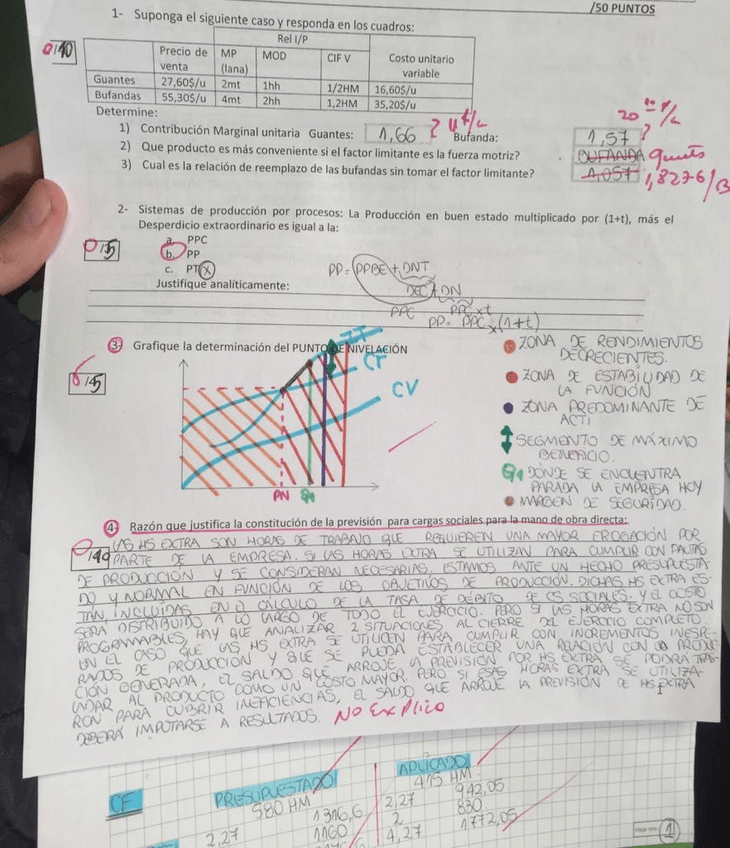 /50 PUNTOS
1- Suponga el siguiente caso y responda en los cuadros:
0/10
Rel I/P
Precio de venta MP (lana) MOD CIF V Costo unitario variable
Guantes 27,60$/u 2mt 1hh 1/2HM 16,60$/u
Bufandas 55,30$/u 4mt 2hh 1,2HM 35,20$/u
Determine:
1) Contribución Marginal unitaria Guantes: 1,66 ? Bufanda: 1,57 ?
2) Que producto es más conveniente si el factor limitante es la fuerza motriz? BUFANDA
3) Cual es la relación de reemplazo de las bufandas sin tomar el factor limitante? 1,057 1,8276/B
2- Sistemas de producción por procesos: La Producción en buen estado multiplicado por (1+t), más el
Desperdicio extraordinario es igual a la:
a. PPC
b. PP
c. PT
Justifique analíticamente:
PP= PPBE + DNT
DEC + DN
PPC PPC x t
PP= PPC x (1+t)
3- Grafique la determinación del PUNTO DE NIVELACIÓN
IT
CT
CV
PN
Q1
ZONA DE RENDIMIENTOS
DECRECIENTES.
ZONA DE ESTABILIDAD DE
LA FUNCIÓN
ZONA PREDOMINANTE DE
ACTI
SEGMENTO DE MÁXIMO
BENEFICIO.
Q1 DONDE SE ENCUENTRA
PARADA LA EMPRESA HOY
MARGEN DE SEGURIDAD.
4- Razón que justifica la constitución de la previsión para cargas sociales para la mano de obra directa:
LAS HS EXTRA SON HORAS DE TRABAJO QUE REQUIEREN UNA MAYOR EROGACIÓN POR
PARTE DE LA EMPRESA. SI LAS HORAS EXTRA SE UTILIZAN PARA CUMPLIR CON PAUTAS
DE PRODUCCIÓN Y SE CONSIDERAN NECESARIAS, ESTAMOS ANTE UN HECHO PRESUPUESTA-
DO Y NORMAL EN FUNCIÓN DE LOS OBJETIVOS DE PRODUCCIÓN. DICHAS HS EXTRA ES-
TÁN INCLUIDAS EN EL CÁLCULO DE LA TASA DE DÉBITO DE CS SOCIALES. Y EL COSTO
SERÁ DISTRIBUIDO A LO LARGO DE TODO EL EJERCICIO. PERO SI LAS HORAS EXTRA NO SON
PROGRAMABLES, HAY QUE ANALIZAR 2 SITUACIONES AL CIERRE DEL EJERCICIO COMPLETO
EN EL CASO QUE LAS HS EXTRA SE UTILICEN PARA CUMPLIR CON INCREMENTOS INESPE-
RADOS DE PRODUCCIÓN Y QUE SE PUEDA ESTABLECER UNA RELACIÓN CON LA PRODUC-
CIÓN GENERADA, EL SALDO QUE ARROJE LA PREVISIÓN POR HS EXTRA SE PODRÁ TRAS-
LADAR AL PRODUCTO COMO UN COSTO MAYOR. PERO SI ESAS HORAS EXTRA SE UTILIZA-
RON PARA CUBRIR INEFICIENCIAS, EL SALDO QUE ARROJE LA PREVISIÓN DE HS EXTRA
DEBERÁ IMPUTARSE A RESULTADOS. NO EXPLICO
CF PRESUPUESTADO APLICADO
580 HM 415 HM
1316,6 2,27 942,05
2,27 1160 2 830
4,27 1772,05
1